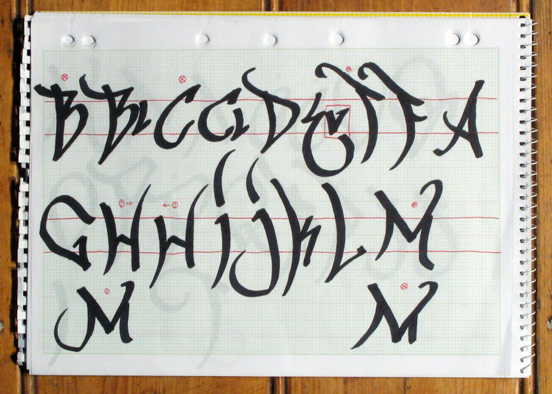 B B C C D E F F A
G H H i j K L M
M M